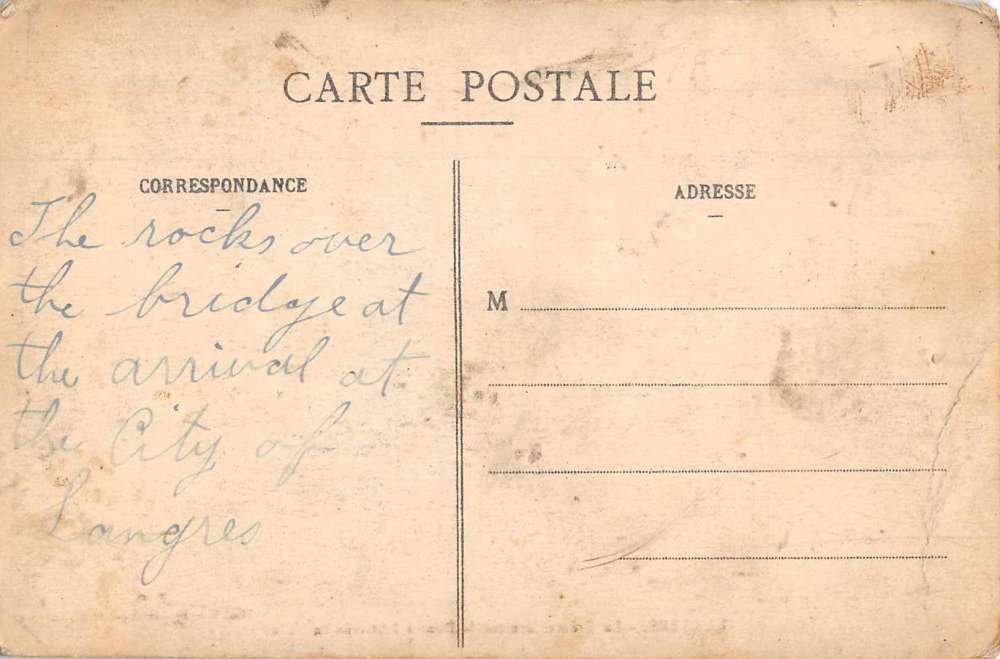 CARTE POSTALE
CORRESPONDANCE
The rocks over
the bridge at
the arrival at
the City of
Langres
ADRESSE
M